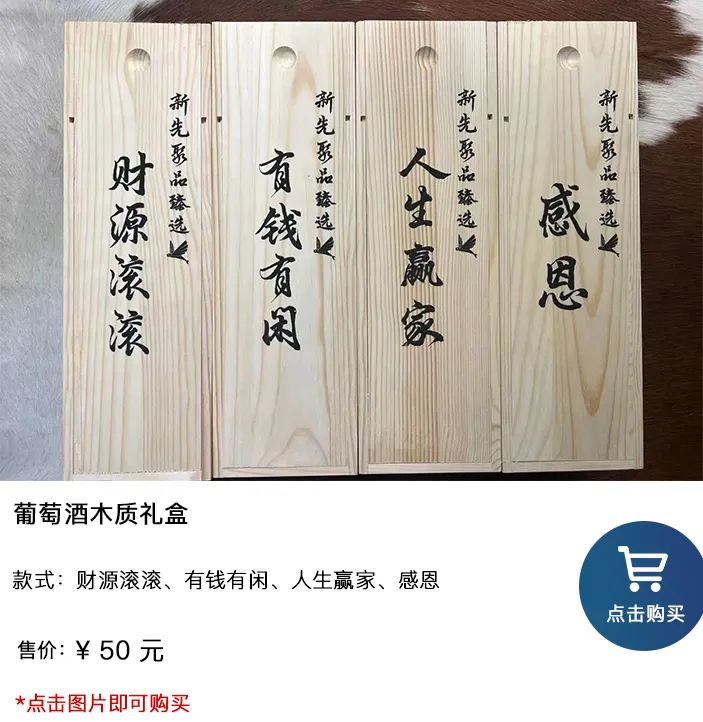 新先聚品臻选
财源滚滚
新先聚品臻选
有钱有闲
新先聚品臻选
人生赢家
新先聚品臻选
感恩
葡萄酒木质礼盒
款式：财源滚滚、有钱有闲、人生赢家、感恩
售价：¥ 50 元
点击购买
*点击图片即可购买